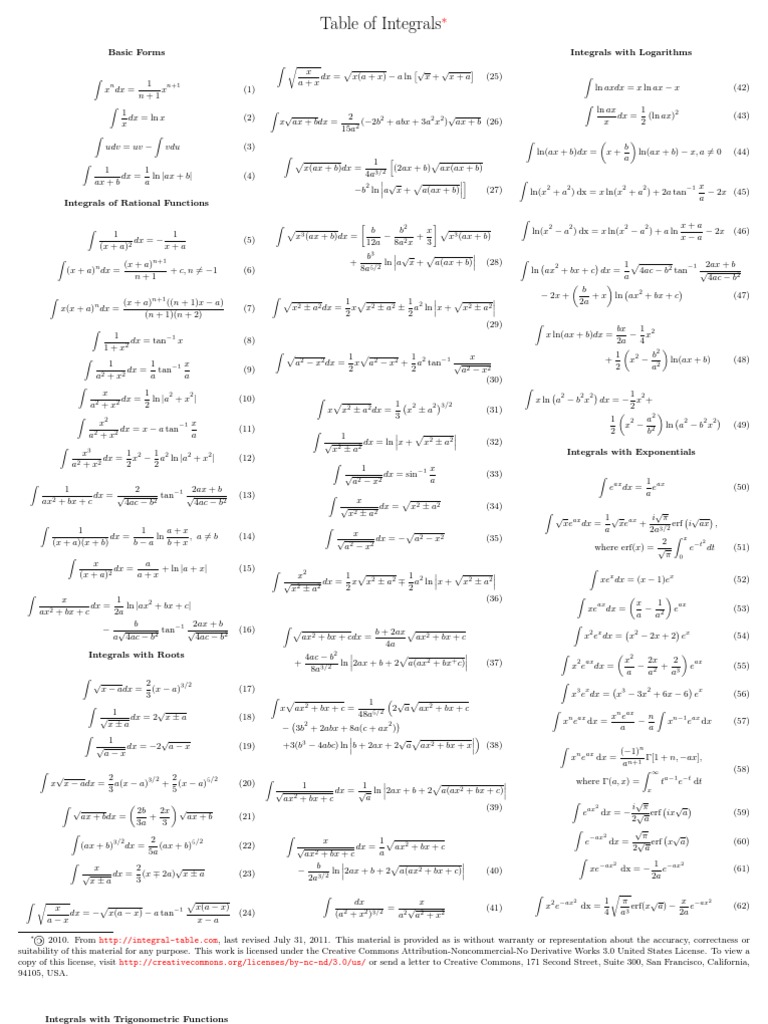 Table of Integrals*
Basic Forms
∫ xⁿdx = 1/(n+1) xⁿ⁺¹ (1)
∫ 1/x dx = ln x (2)
∫ udv = uv − ∫ vdu (3)
∫ 1/(ax + b) dx = 1/a ln |ax + b| (4)
Integrals of Rational Functions
∫ 1/(x + a)² dx = − 1/(x + a) (5)
∫ (x + a)ⁿdx = (x + a)ⁿ⁺¹/(n + 1) + c, n ≠ −1 (6)
∫ x(x + a)ⁿdx = (x + a)ⁿ⁺¹((n + 1)x − a)/((n + 1)(n + 2)) (7)
∫ 1/(1 + x²) dx = tan⁻¹ x (8)
∫ 1/(a² + x²) dx = 1/a tan⁻¹ x/a (9)
∫ x/(a² + x²) dx = 1/2 ln |a² + x²| (10)
∫ x²/(a² + x²) dx = x − a tan⁻¹ x/a (11)
∫ x³/(a² + x²) dx = 1/2 x² − 1/2 a² ln |a² + x²| (12)
∫ 1/(ax² + bx + c) dx = 2/√(4ac − b²) tan⁻¹ (2ax + b)/√(4ac − b²) (13)
∫ 1/((x + a)(x + b)) dx = 1/(b − a) ln (a + x)/(b + x), a ≠ b (14)
∫ x/(x + a)² dx = a/(a + x) + ln |a + x| (15)
∫ x/(ax² + bx + c) dx = 1/2a ln |ax² + bx + c|
− b/(a√(4ac − b²)) tan⁻¹ (2ax + b)/√(4ac − b²) (16)
Integrals with Roots
∫ √(x − a)dx = 2/3 (x − a)^(3/2) (17)
∫ 1/√(x ± a) dx = 2√(x ± a) (18)
∫ 1/√(a − x) dx = −2√(a − x) (19)
∫ x√(x − a)dx = 2/3 a(x − a)^(3/2) + 2/5 (x − a)^(5/2) (20)
∫ √(ax + b)dx = (2b/3a + 2x/3) √(ax + b) (21)
∫ (ax + b)^(3/2)dx = 2/5a (ax + b)^(5/2) (22)
∫ x/√(x ± a) dx = 2/3 (x ∓ 2a)√(x ± a) (23)
∫ √(x/(a − x)) dx = −√(x(a − x)) − a tan⁻¹ √(x(a − x))/(x − a) (24)
∫ √(x/(a + x)) dx = √(x(a + x)) − a ln [√x + √(x + a)] (25)
∫ x√(ax + b)dx = 2/15a² (−2b² + abx + 3a²x²)√(ax + b) (26)
∫ √(x(ax + b))dx = 1/4a^(3/2) [(2ax + b)√(ax(ax + b))
−b² ln |a√x + √(a(ax + b))|] (27)
∫ √(x³(ax + b))dx = [b/12a − b²/8a²x + x/3] √(x³(ax + b))
+ b³/8a^(5/2) ln |a√x + √(a(ax + b))| (28)
∫ √(x² ± a²)dx = 1/2 x√(x² ± a²) ± 1/2 a² ln |x + √(x² ± a²)|
(29)
∫ √(a² − x²)dx = 1/2 x√(a² − x²) + 1/2 a² tan⁻¹ x/√(a² − x²)
(30)
∫ x√(x² ± a²)dx = 1/3 (x² ± a²)^(3/2) (31)
∫ 1/√(x² ± a²) dx = ln |x + √(x² ± a²)| (32)
∫ 1/√(a² − x²) dx = sin⁻¹ x/a (33)
∫ x/√(x² ± a²) dx = √(x² ± a²) (34)
∫ x/√(a² − x²) dx = −√(a² − x²) (35)
∫ x²/√(x² ± a²) dx = 1/2 x√(x² ± a²) ∓ 1/2 a² ln |x + √(x² ± a²)|
(36)
∫ √(ax² + bx + c)dx = (b + 2ax)/4a √(ax² + bx + c)
+ (4ac − b²)/8a^(3/2) ln |2ax + b + 2√(a(ax² + bx⁺c))| (37)
∫ x√(ax² + bx + c) = 1/48a^(5/2) (2√a√(ax² + bx + c)
− (3b² + 2abx + 8a(c + ax²))
+3(b³ − 4abc) ln |b + 2ax + 2√a√(ax² + bx + x)|) (38)
∫ 1/√(ax² + bx + c) dx = 1/√a ln |2ax + b + 2√(a(ax² + bx + c))|
(39)
∫ x/√(ax² + bx + c) dx = 1/a √(ax² + bx + c)
− b/2a^(3/2) ln |2ax + b + 2√(a(ax² + bx + c))| (40)
∫ dx/(a² + x²)^(3/2) = x/(a²√(a² + x²)) (41)
Integrals with Logarithms
∫ ln axdx = x ln ax − x (42)
∫ ln ax/x dx = 1/2 (ln ax)² (43)
∫ ln(ax + b)dx = (x + b/a) ln(ax + b) − x, a ≠ 0 (44)
∫ ln(x² + a²) dx = x ln(x² + a²) + 2a tan⁻¹ x/a − 2x (45)
∫ ln(x² − a²) dx = x ln(x² − a²) + a ln (x + a)/(x − a) − 2x (46)
∫ ln (ax² + bx + c) dx = 1/a √(4ac − b²) tan⁻¹ (2ax + b)/√(4ac − b²)
− 2x + (b/2a + x) ln (ax² + bx + c) (47)
∫ x ln(ax + b)dx = bx/2a − 1/4 x²
+ 1/2 (x² − b²/a²) ln(ax + b) (48)
∫ x ln (a² − b²x²) dx = − 1/2 x²+
1/2 (x² − a²/b²) ln (a² − b²x²) (49)
Integrals with Exponentials
∫ e^(ax)dx = 1/a e^(ax) (50)
∫ √xe^(ax)dx = 1/a √xe^(ax) + i√π/2a^(3/2) erf (i√(ax)),
where erf(x) = 2/√π ∫₀ˣ e^(−t²)dt (51)
∫ xeˣdx = (x − 1)eˣ (52)
∫ xe^(ax)dx = (x/a − 1/a²) e^(ax) (53)
∫ x²eˣdx = (x² − 2x + 2) eˣ (54)
∫ x²e^(ax)dx = (x²/a − 2x/a² + 2/a³) e^(ax) (55)
∫ x³eˣdx = (x³ − 3x² + 6x − 6) eˣ (56)
∫ xⁿe^(ax) dx = xⁿe^(ax)/a − n/a ∫ xⁿ⁻¹e^(ax)dx (57)
∫ xⁿe^(ax) dx = (−1)ⁿ/aⁿ⁺¹ Γ[1 + n, −ax],
where Γ(a, x) = ∫ₓ^∞ t^(a−1)e^(−t) dt
(58)
∫ e^(ax²) dx = − i√π/2√a erf (ix√a) (59)
∫ e^(−ax²) dx = √π/2√a erf (x√a) (60)
∫ xe^(−ax²) dx = − 1/2a e^(−ax²) (61)
∫ x²e^(−ax²) dx = 1/4 √(π/a³) erf(x√a) − x/2a e^(−ax²) (62)
*🄯 2010. From http://integral-table.com, last revised July 31, 2011. This material is provided as is without warranty or representation about the accuracy, correctness or
suitability of this material for any purpose. This work is licensed under the Creative Commons Attribution-Noncommercial-No Derivative Works 3.0 United States License. To view a
copy of this license, visit http://creativecommons.org/licenses/by-nc-nd/3.0/us/ or send a letter to Creative Commons, 171 Second Street, Suite 300, San Francisco, California,
94105, USA.
Integrals with Trigonometric Functions